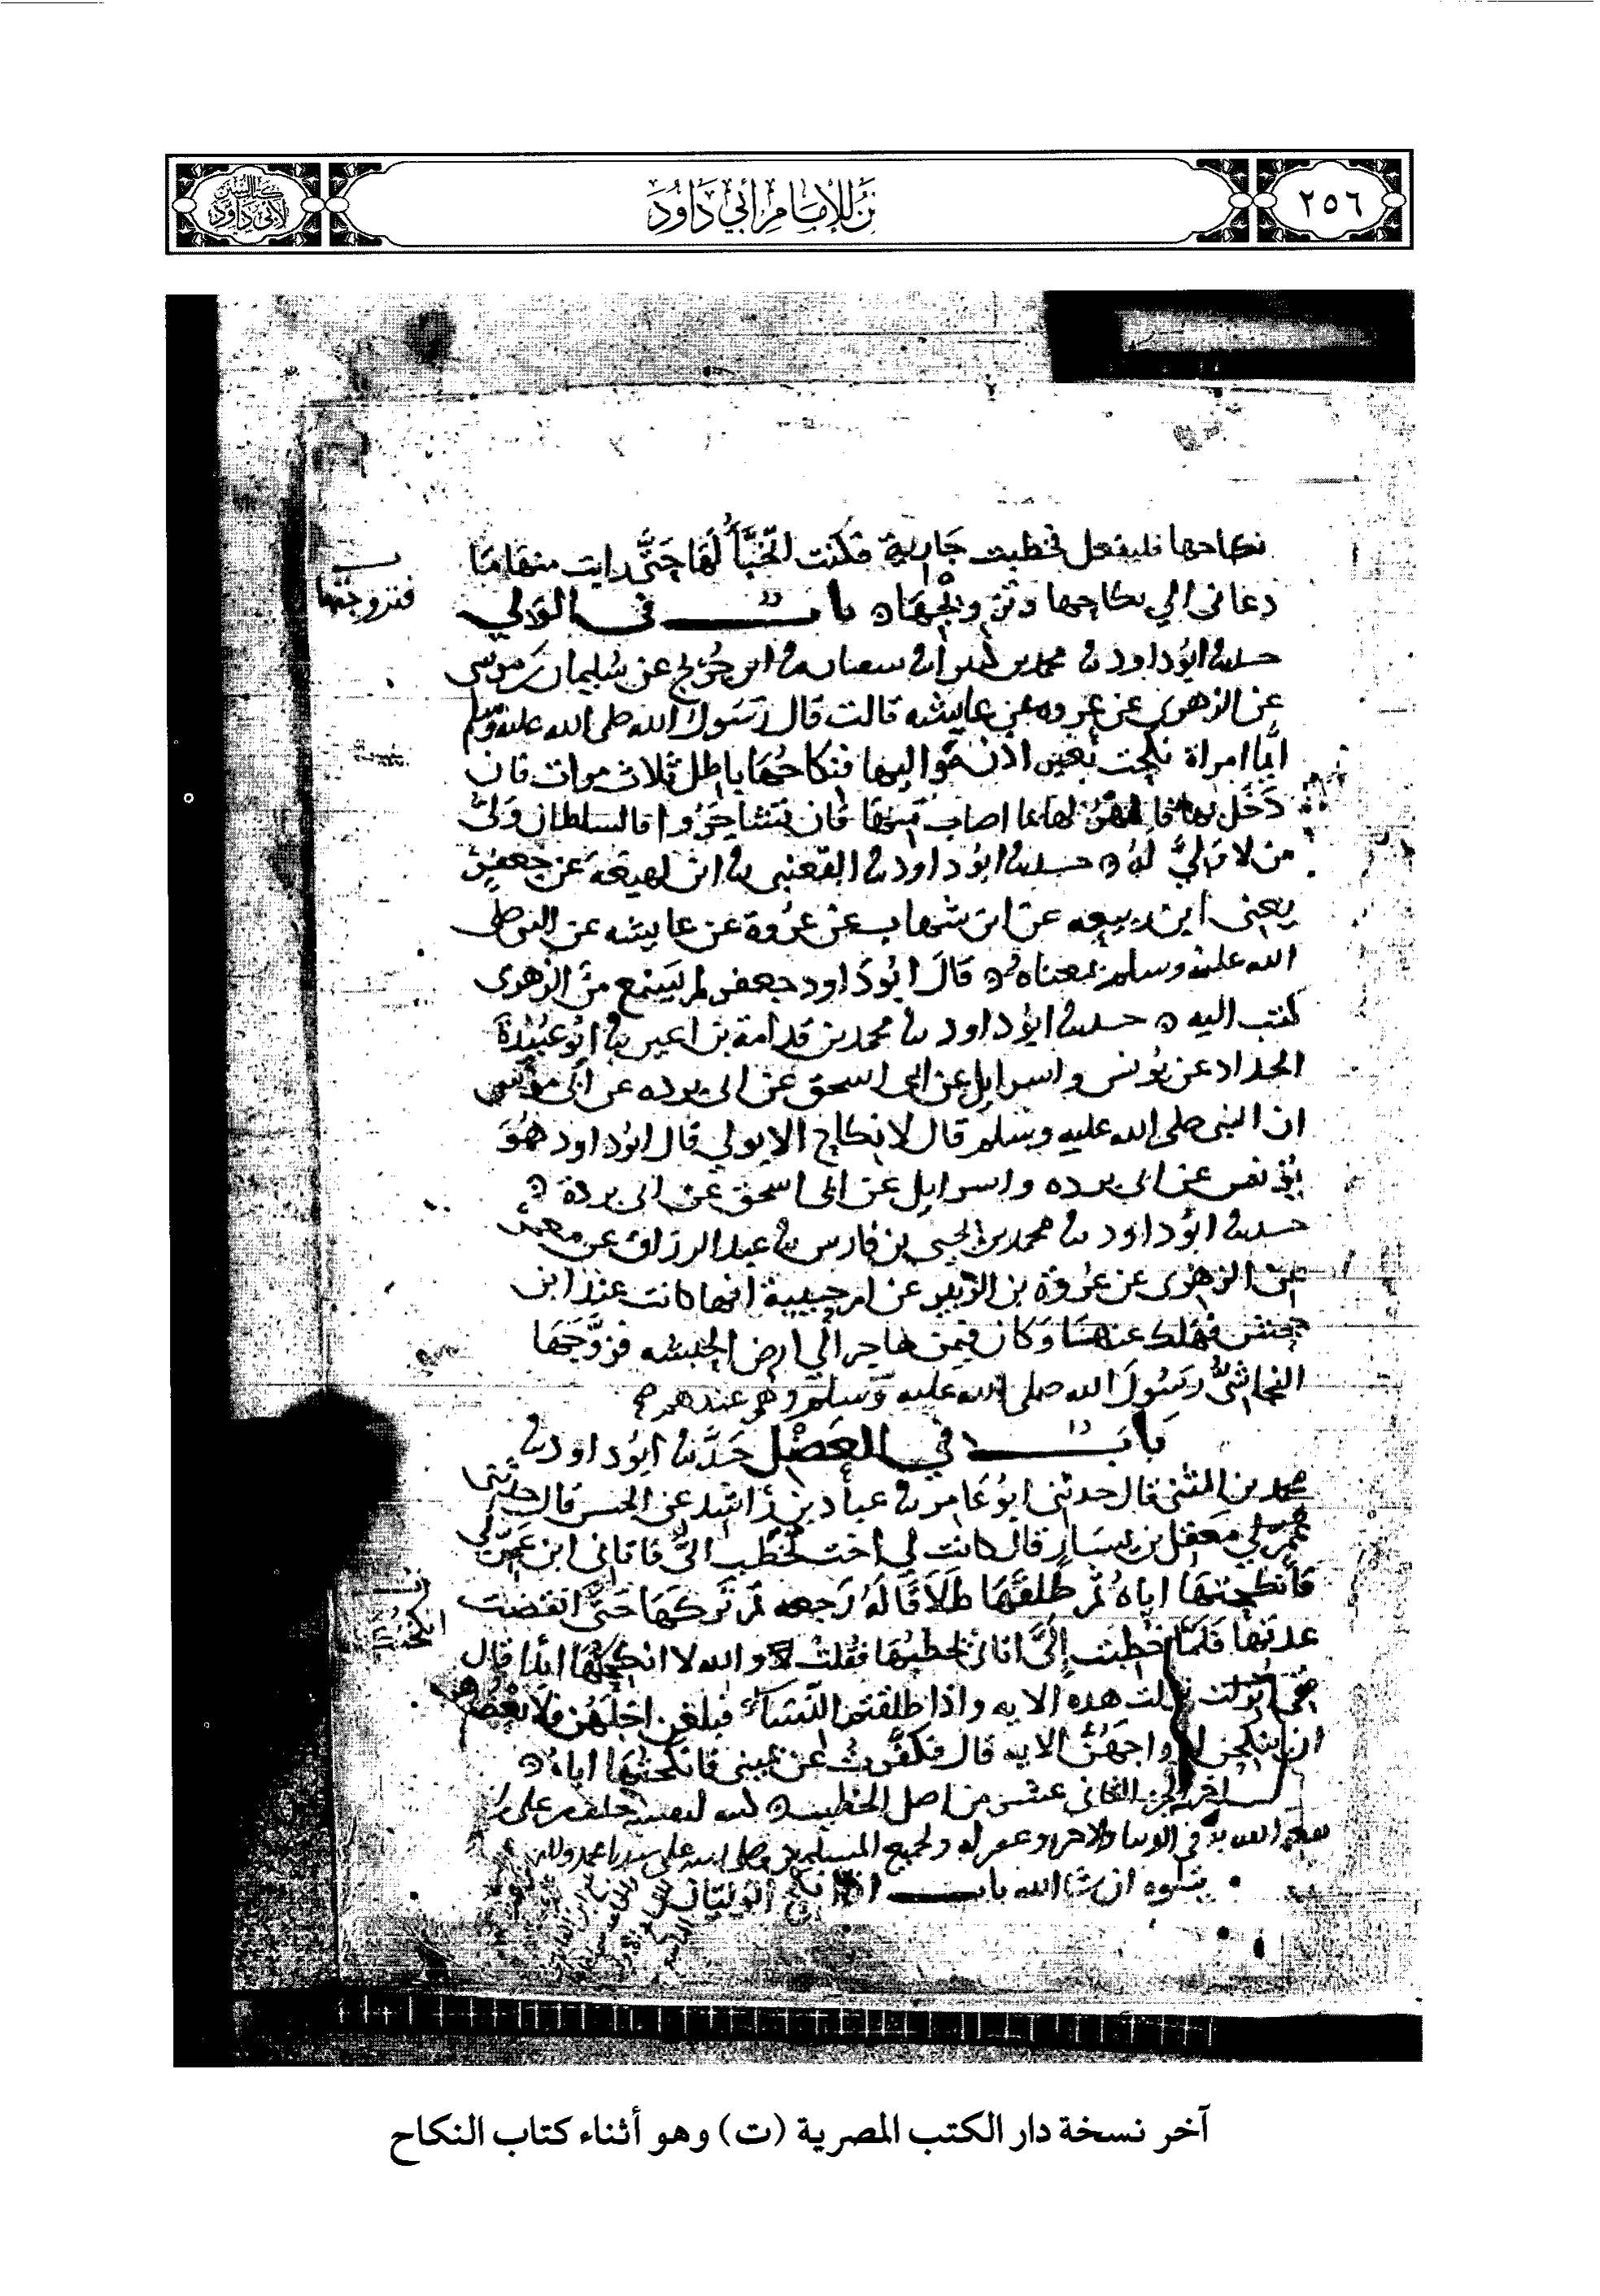 ٢٥٦
للإمام أبي داود
نكاحها فليفعل فخطبت جارية فكنت اتخبأ لها حتى رايت منها ما
دعاني الي نكاحها وتزوجها باب في الولي
فتزوجتها
حدثنا ابو داود نا محمد بن كثير انا سفيان نا ابن جريج عن سليمان بن موسى
عن الزهري عن عروه عن عايشه قالت قال رسول الله صلى الله عليه وسلم
ايما امراة نكحت بغير اذن مواليها فنكاحها باطل ثلاث مرات فان
دخل بها فالمهر لها بما اصاب منها فان تشاجروا فالسلطان ولي
من لا ولي له حدثنا ابو داود نا القعنبي نا ابن لهيعة عن جعفر
يعني ابن ربيعه عن ابن شهاب عن عروة عن عايشه عن النبي صلى
الله عليه وسلم بمعناه قال ابو داود جعفر لم يسمع من الزهري
كتب اليه حدثنا ابو داود نا محمد بن قدامة بن اعين نا ابو عبيدة
الحداد عن يونس واسرايل عن ابي اسحق عن ابي برده عن ابي موسى
ان النبي صلى الله عليه وسلم قال لا نكاح الا بولي قال ابو داود هو
يونس عن ابي برده واسرايل عن ابي اسحق عن ابي بردة
حدثنا ابو داود نا محمد بن يحيى بن فارس نا عبد الرزاق عن معمر
عن الزهري عن عروة بن الزبير عن ام حبيبة انها كانت عند ابن
جحش فهلك عنها وكان فيمن هاجر الي ارض الحبشه فزوجها
النجاشي رسول الله صلى الله عليه وسلم وهي عندهم
باب في العضل حدثنا ابو داود نا
محمد بن المثنى قال حدثني ابو عامر نا عباد بن راشد عن الحسن قال حدثني
معقل بن يسار قال كانت لي اخت تخطب الي فاتاني ابن عم لي
فانكحتها اياه ثم طلقها طلاقا له رجعه ثم تركها حتى انقضت
عدتها فلما خطبت إلي اتاني يخطبها فقلت لا والله لا انكحكها ابدا قال
ففي نزلت هذه الايه واذا طلقتم النساء فبلغن اجلهن فلا تعضلوهن
ان ينكحن ازواجهن الايه قال فكفرت عن يميني فانكحتها اياه
اخر الجزء الثاني عشر من اصل الخطيب كتبه لنفسه
في الدنيا والاخره وغفر له ولجميع المسلمين وصلى الله على سيدنا محمد
يتلوه ان شا الله باب اذا انكح الوليان
آخر نسخة دار الكتب المصرية (ت) وهو أثناء كتاب النكاح